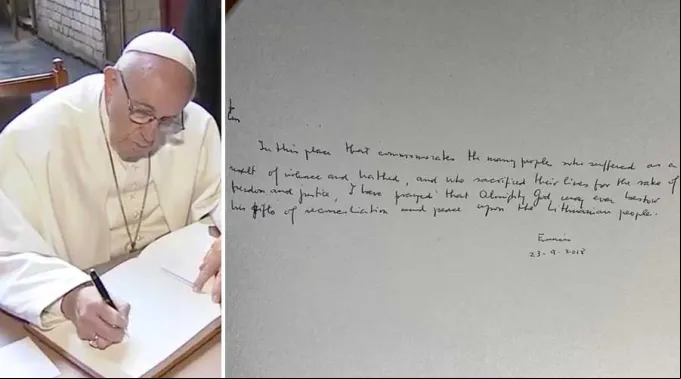 In this place that commemorates the many people who suffered as a
result of violence and hatred, and who sacrificed their lives for the sake of
freedom and justice, I have prayed that Almighty God may ever bestow
his gifts of reconciliation and peace upon the Lithuanian people.
23-9-2018